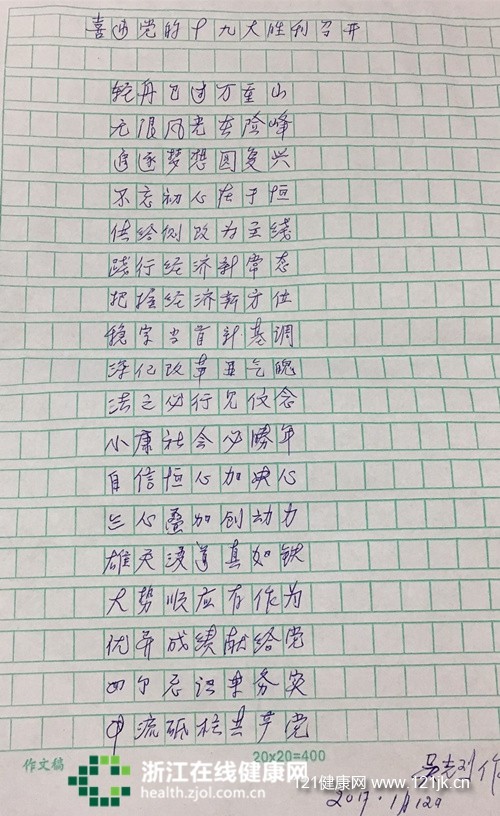 喜迎党的十九大胜利召开
轻舟已过万重山
无限风光在险峰
追逐梦想图复兴
不忘初心在于恒
供给侧改为主线
践行经济新常态
把握经济新方位
稳字当首新基调
深化改革显气魄
法之必行见信念
小康社会必胜年
自信恒心加决心
三心叠加创动力
雄关漫道真如铁
大势顺应有作为
优异成绩献给党
四个意识重务实
中流砥柱共产党
作文稿
20x20=400
作
2017.1月12日
浙江在线健康网
health.zjol.com.cn
121健康网 www.121jk.cn